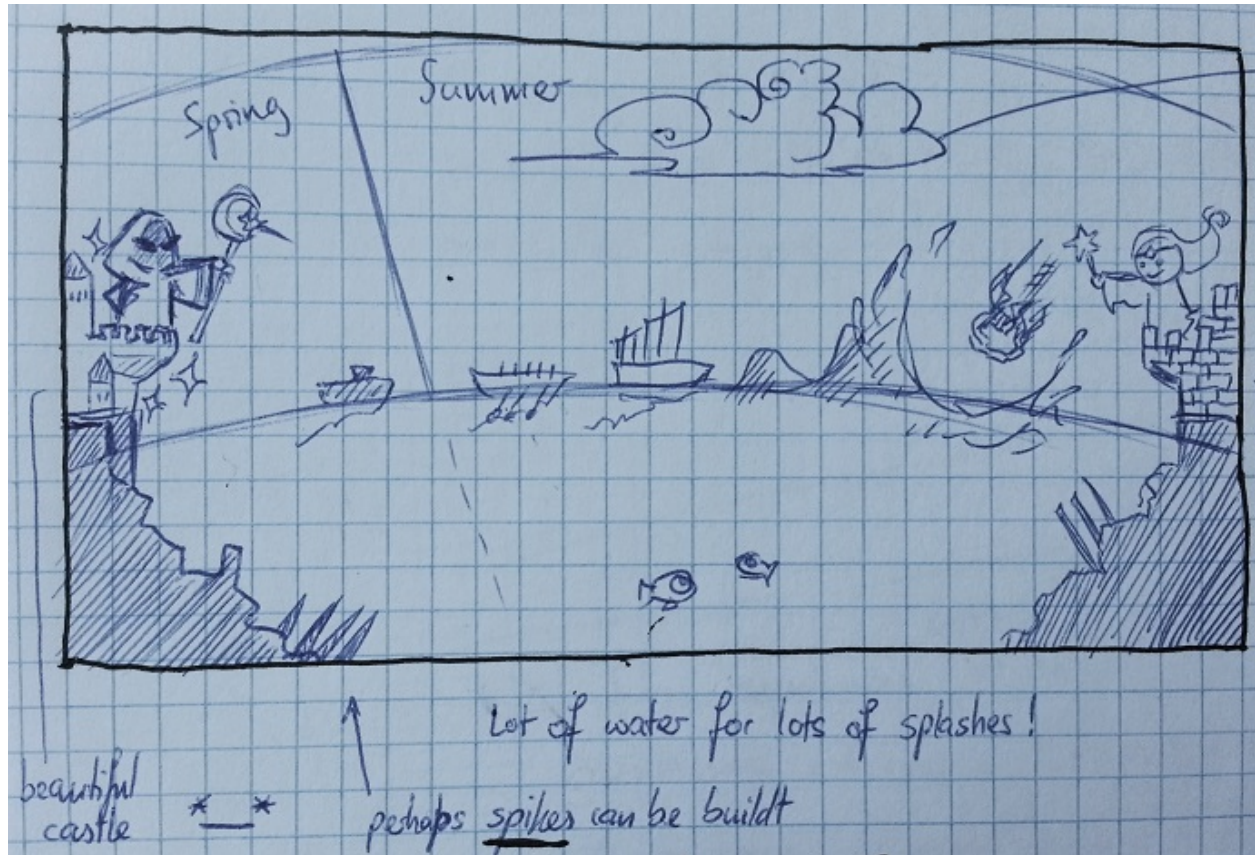 Spring
Summer
Lot of water for lots of splashes!
beautiful
castle
*__*
perhaps spikes can be buildt